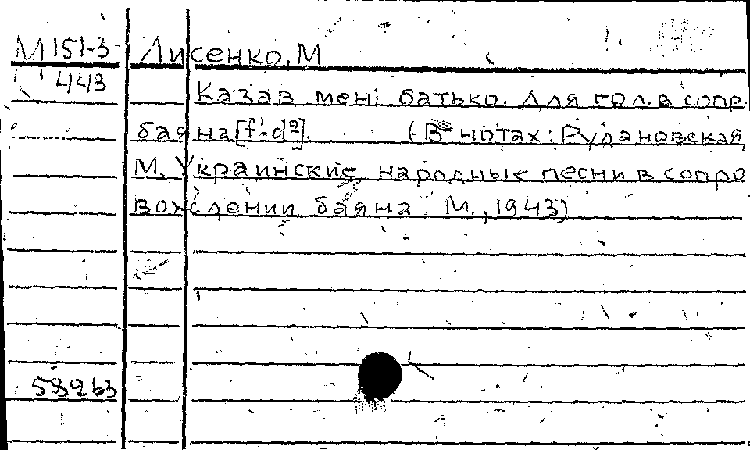 М 151-3 Лисенко, М
443
Казав мені батько. Для гол. в сопр
баяна [f-d²]. (В нотах: Рудановская
М. Украинские народные песни в сопро
вождении баяна. М., 1943)